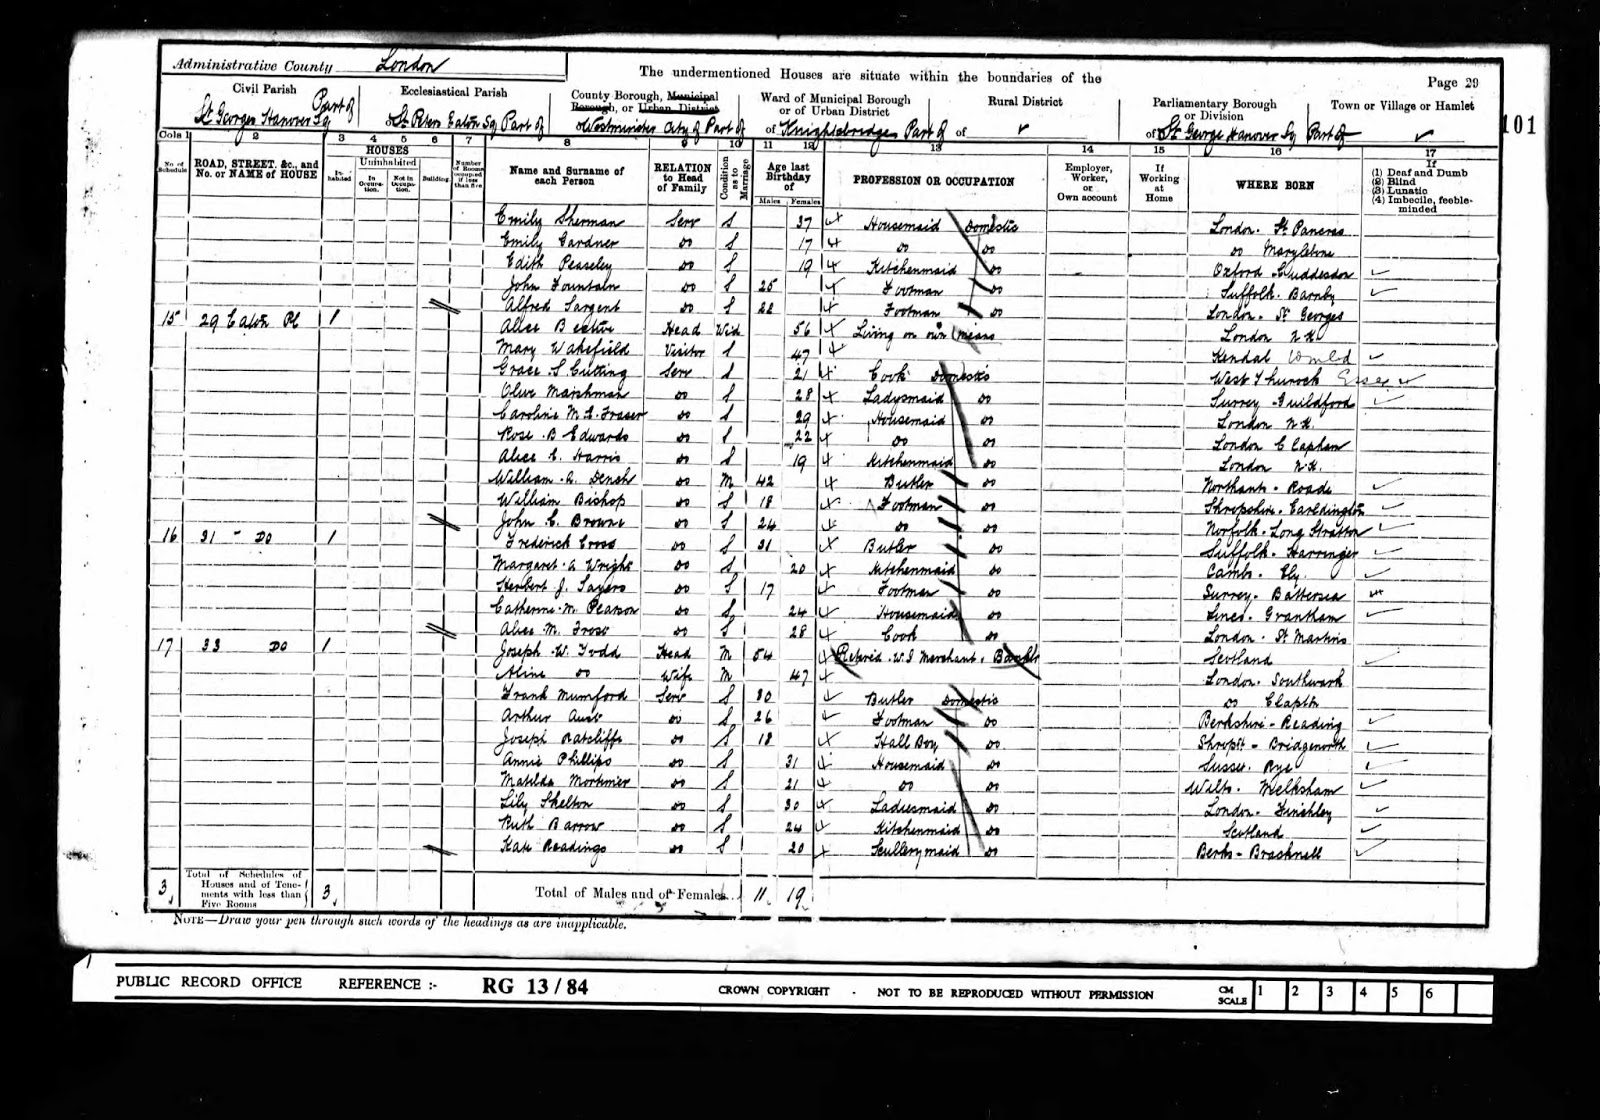 Administrative County London
The undermentioned Houses are situate within the boundaries of the
Page 29
Civil Parish
Part of
St. Georges Hanover Sq
Ecclesiastical Parish
of St. Peters Eaton Sq Part of
County Borough, Municipal Borough, or Urban District
of Westminster City of Part of
Ward of Municipal Borough or of Urban District
of Knightsbridge Part of
Rural District
of
Parliamentary Borough or Division
of St George Hanover Sq Part of
Town or Village or Hamlet
101
Cols 1 2 3 4 5 6 7 8 9 10 11 12 13 14 15 16 17
No. of Schedule
ROAD, STREET. &c., and No. or NAME of HOUSE
HOUSES
Inhabited
Uninhabited
In Occupation.
Not in Occupation.
Building
Number of Rooms occupied if less than five
Name and Surname of each Person
RELATION to Head of Family
Condition as to Marriage
Age last Birthday of
Males Females
PROFESSION OR OCCUPATION
Employer, Worker, or Own account
If Working at Home
WHERE BORN
If
(1) Deaf and Dumb
(2) Blind
(3) Lunatic
(4) Imbecile, feeble-minded
Emily Sherman Serv S 37 Housemaid Domestic London. St. Pancras
Emily Gardner do S 17 do do do Marylebone
Edith Peaseley do S 19 Kitchenmaid do Oxford Cuddesdon
John Fountain do S 25 Footman do Suffolk. Barnby
Alfred Sargent do S 22 Footman do London. St. Georges
15 29 Eaton Pl 1 Alice Bective Head Wid 56 Living on own means London N.K.
Mary Wakefield Visitor S 47 Kendal
Grace S. Cutting Serv S 21 Cook Domestic West Thurrock Essex
Olive Marshman do S 28 Ladysmaid do Surrey Guildford
Caroline M. Fraser do S 29 Housemaid do London N.K.
Rose B Edwards do S 22 do do London Clapham
Alice E. Harris do S 19 Kitchenmaid do London N.K.
William A. Dench do M 42 Butler do Northants. Roade
William Bishop do S 18 Footman do Shropshire. Eardington
John C. Browne do S 24 do do Norfolk. Long Stratton
16 31 - Do 1 Frederick Cross do S 31 Butler do Suffolk. Harringer
Margaret A Wright do S 20 Kitchenmaid do Cambs. Ely.
Herbert J. Sayers do S 17 Footman do Surrey. Battersea
Catherine M. Pearson do S 24 Housemaid do Lincs. Grantham
Alice M. Frost do S 28 Cook do London. St Martins
17 33 Do 1 Joseph W. Todd Head M 54 Retired W.I Merchant. Banker Scotland
Aline do Wife M 47 London. Southwark
Frank Mumford Serv S 30 Butler Domestic do Clapton
Arthur Aust do S 26 Footman do Berkshire - Reading
Joseph Ratcliffe do S 18 Hall Boy do Shrops - Bridgenorth
Annie Phillips do S 31 Housemaid do Sussex. Rye
Matilda Mortimer do S 21 do do Wilts. Melksham
Lily Skelton do S 30 Ladiesmaid do London. Finchley
Ruth Barrow do S 24 Kitchenmaid do Scotland
Kate Readings do S 20 Scullerymaid do Berks - Bracknell
3 Total of Schedules of Houses and of Tenements with less than Five Rooms 3 Total of Males and of Females 11 19
NOTE—Draw your pen through such words of the headings as are inapplicable.
PUBLIC RECORD OFFICE REFERENCE :- RG 13 / 84 CROWN COPYRIGHT - NOT TO BE REPRODUCED WITHOUT PERMISSION CM SCALE 1 2 3 4 5 6